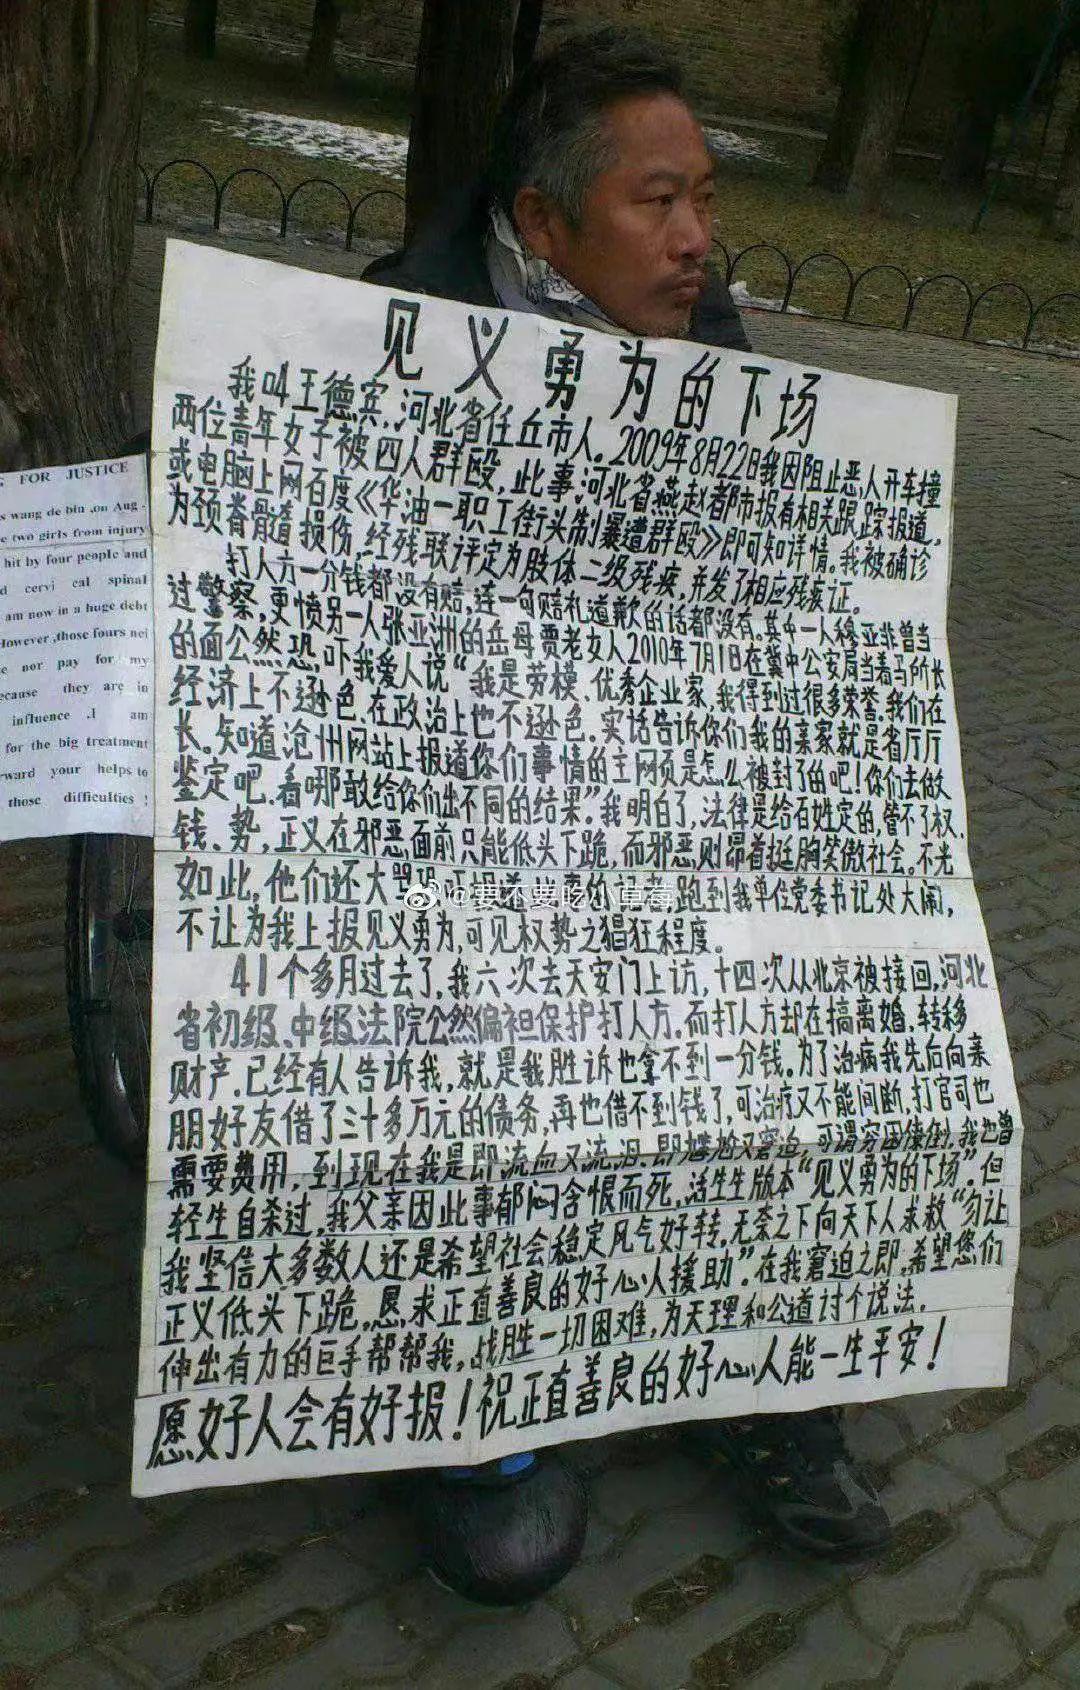 见义勇为的下场
我叫王德宾.河北省任丘市人.2009年8月22日我因阻止恶人开车撞
两位青年女子被四人群殴,此事河北省燕赵都市报有相关跟踪报道,
或电脑上网百度《华油一职工街头制暴遭群殴》即可知详情。我被确诊
为颈脊髓损伤,经残联评定为肢体二级残疾,并发了相应残疾证。
打人方一分钱都没有赔,连一句赔礼道歉的话都没有。其中一人穆亚非曾当
过警察,更愤另一人张亚洲的岳母贾老女人2010年7月1日在冀中公安局当着马所长
的面公然恐吓我爱人说“我是劳模.优秀企业家,我得到过很多荣誉.我们在
经济上不逊色.在政治上也不逊色.实话告诉你们我的亲家就是省厅厅
长。知道沧州网站上报道你们事情的主网页是怎么被封了的吧!你们去做
鉴定吧.看哪敢给你们出不同的结果”我明白了,法律是给百姓定的,管不了权.
钱、势,正义在邪恶面前只能低头下跪,而邪恶则昂首挺胸笑傲社会。不光
如此,他们还大骂 报道 的记者,跑到我单位党委书记处大闹,
不让为我上报见义勇为,可见权势之猖狂程度。
41个多月过去了,我六次去天安门上访,十四次从北京被接回,河北
省初级、中级法院公然偏袒保护打人方.而打人方却在搞离婚,转移
财产.已经有人告诉我,就是我胜诉也拿不到一分钱。为了治病我先后向亲
朋好友借了三十多万元的债务,再也借不到钱了,可治疗又不能间断,打官司也
需要费用,到现在我是即流血又流泪、即尴尬又窘迫,可谓穷困潦倒,我也曾
轻生自杀过,我父亲因此事郁闷含恨而死,活生生版本“见义勇为的下场”.但
我坚信大多数人还是希望社会稳定风气好转.无奈之下向天下人求救“勿让
正义低头下跪.恳求正直善良的好心人援助”.在我窘迫之即,希望您们
伸出有力的巨手帮帮我,战胜一切困难,为天理和公道讨个说法.
愿好人会有好报!祝正直善良的好心人能一生平安!
FOR JUSTICE
s wang de bin ,on Aug-
e two girls from injury
hit by four people and
d cervi cal spinal
am now in a huge debt
However ,those fours nei
e nor pay for my
ecause they are in
influence .I am
for the big treatment
rward your helps to
those difficulties!
@要不要吃小草莓